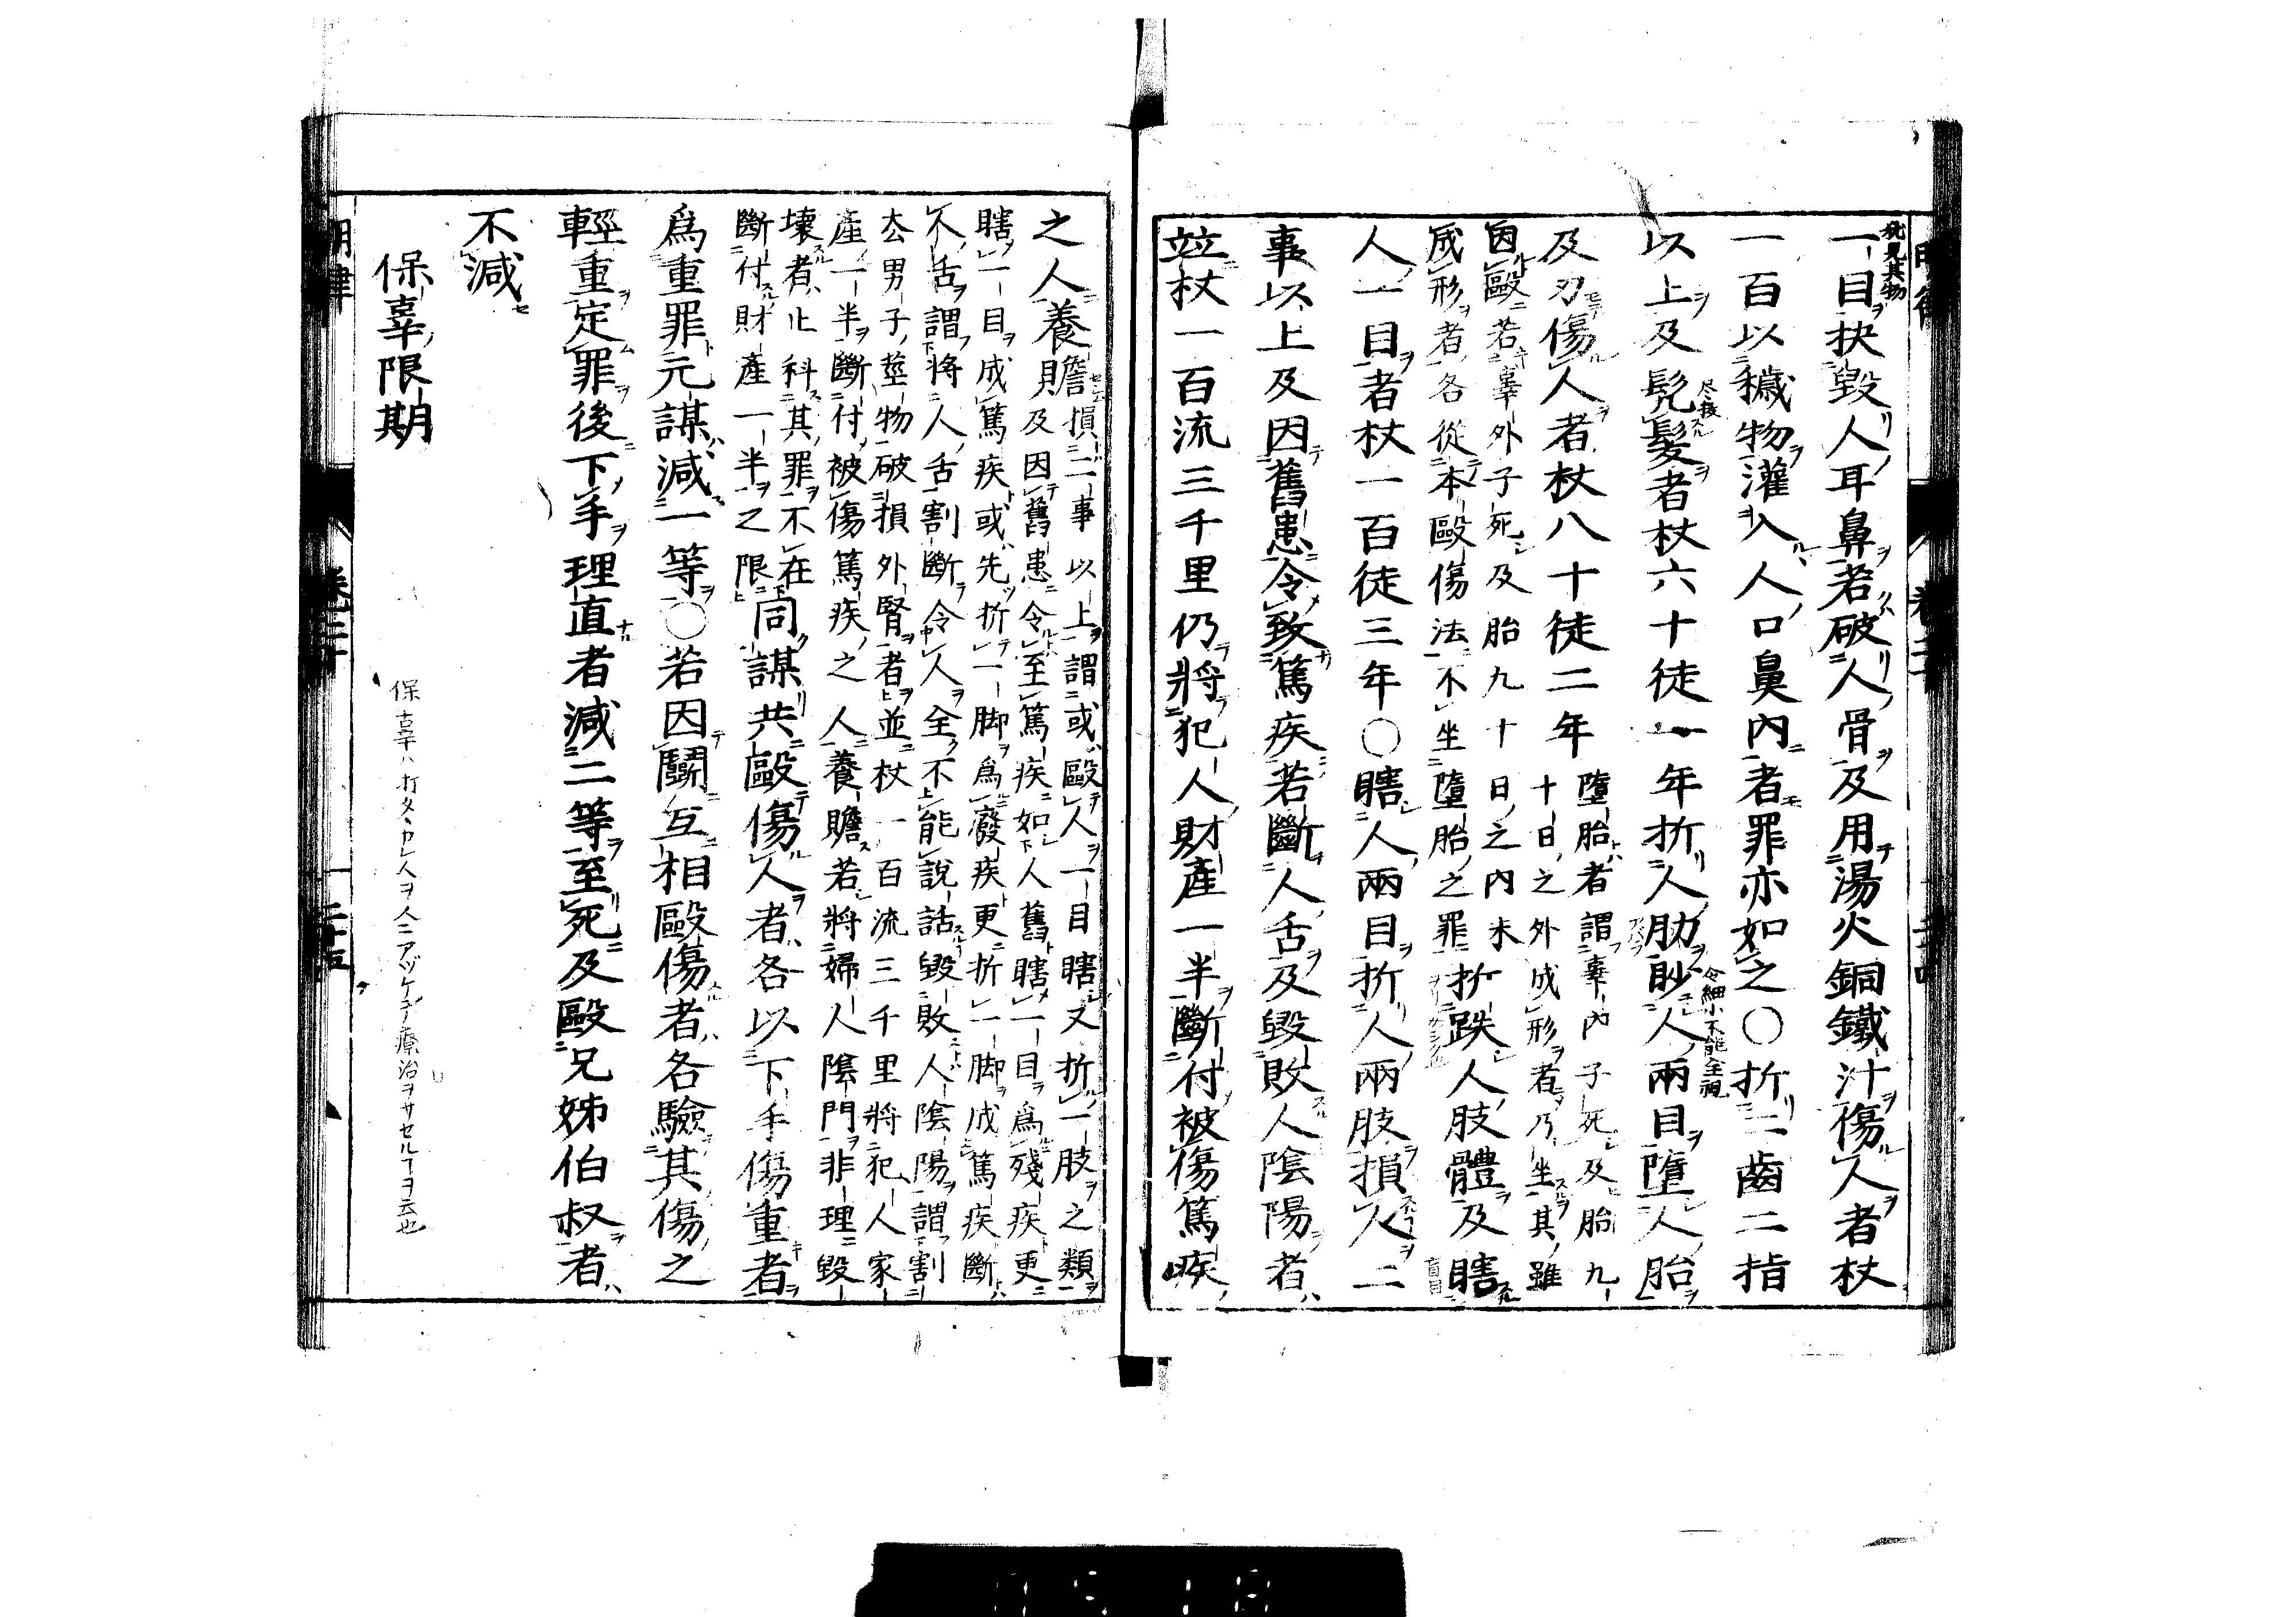 一目抉毀人耳鼻若破人骨及用湯火銅鐵汁傷人者杖
一百以穢物灌入人口鼻內者罪亦如之〇折二齒二指
以上及髡髮者杖六十徒一年折人肋眇人兩目墮人胎
及刃傷人者杖八十徒二年
墮胎者謂辜內子死及胎九
十日之外成形者乃坐其雖
因毆若辜外子死及胎九十日之內未
成形者各從本毆傷法不坐墮胎之罪
折跌人肢體及瞎
人一目者杖一百徒三年〇瞎人兩目折人兩肢損人二
事以上及因舊患令致篤疾若斷人舌及毀敗人陰陽者
竝杖一百流三千里仍將犯人財產一半斷付被傷篤疾
之人養贍
損二事以上謂或毆人一目瞎又折一肢之類
及因舊患令至篤疾如人舊瞎一目為殘疾更
瞎一目成篤疾或先折一脚為廢疾更折一脚成篤疾斷
人舌謂將人舌割斷令人全不能說話毀敗人陰陽謂割
去男子莖物破損外腎者並杖一百流三千里將犯人家
產一半斷付被傷篤疾之人養贍若將婦人陰門非理毀
壞者止科其罪不在
斷付財產一半之限
同謀共毆傷人者各以下手傷重者
為重罪元謀減一等〇若因鬬互相毆傷者各驗其傷之
輕重定罪後下手理直者減二等至死及毆兄姊伯叔者
不減
保辜限期
保辜ハ打タヽカレ人ヲ人ニアヅケテ療治ヲサセルヿヲ云也